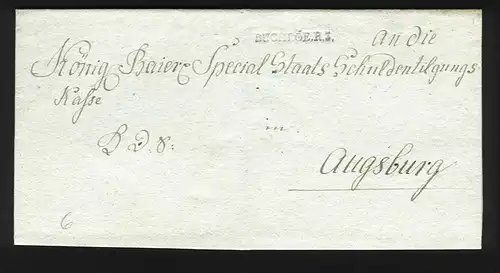 BUCHLOE.R.3. an die
König Baier Special Staats Schuldentilgungs
Kasse
R. D. S:
in
Augsburg
6